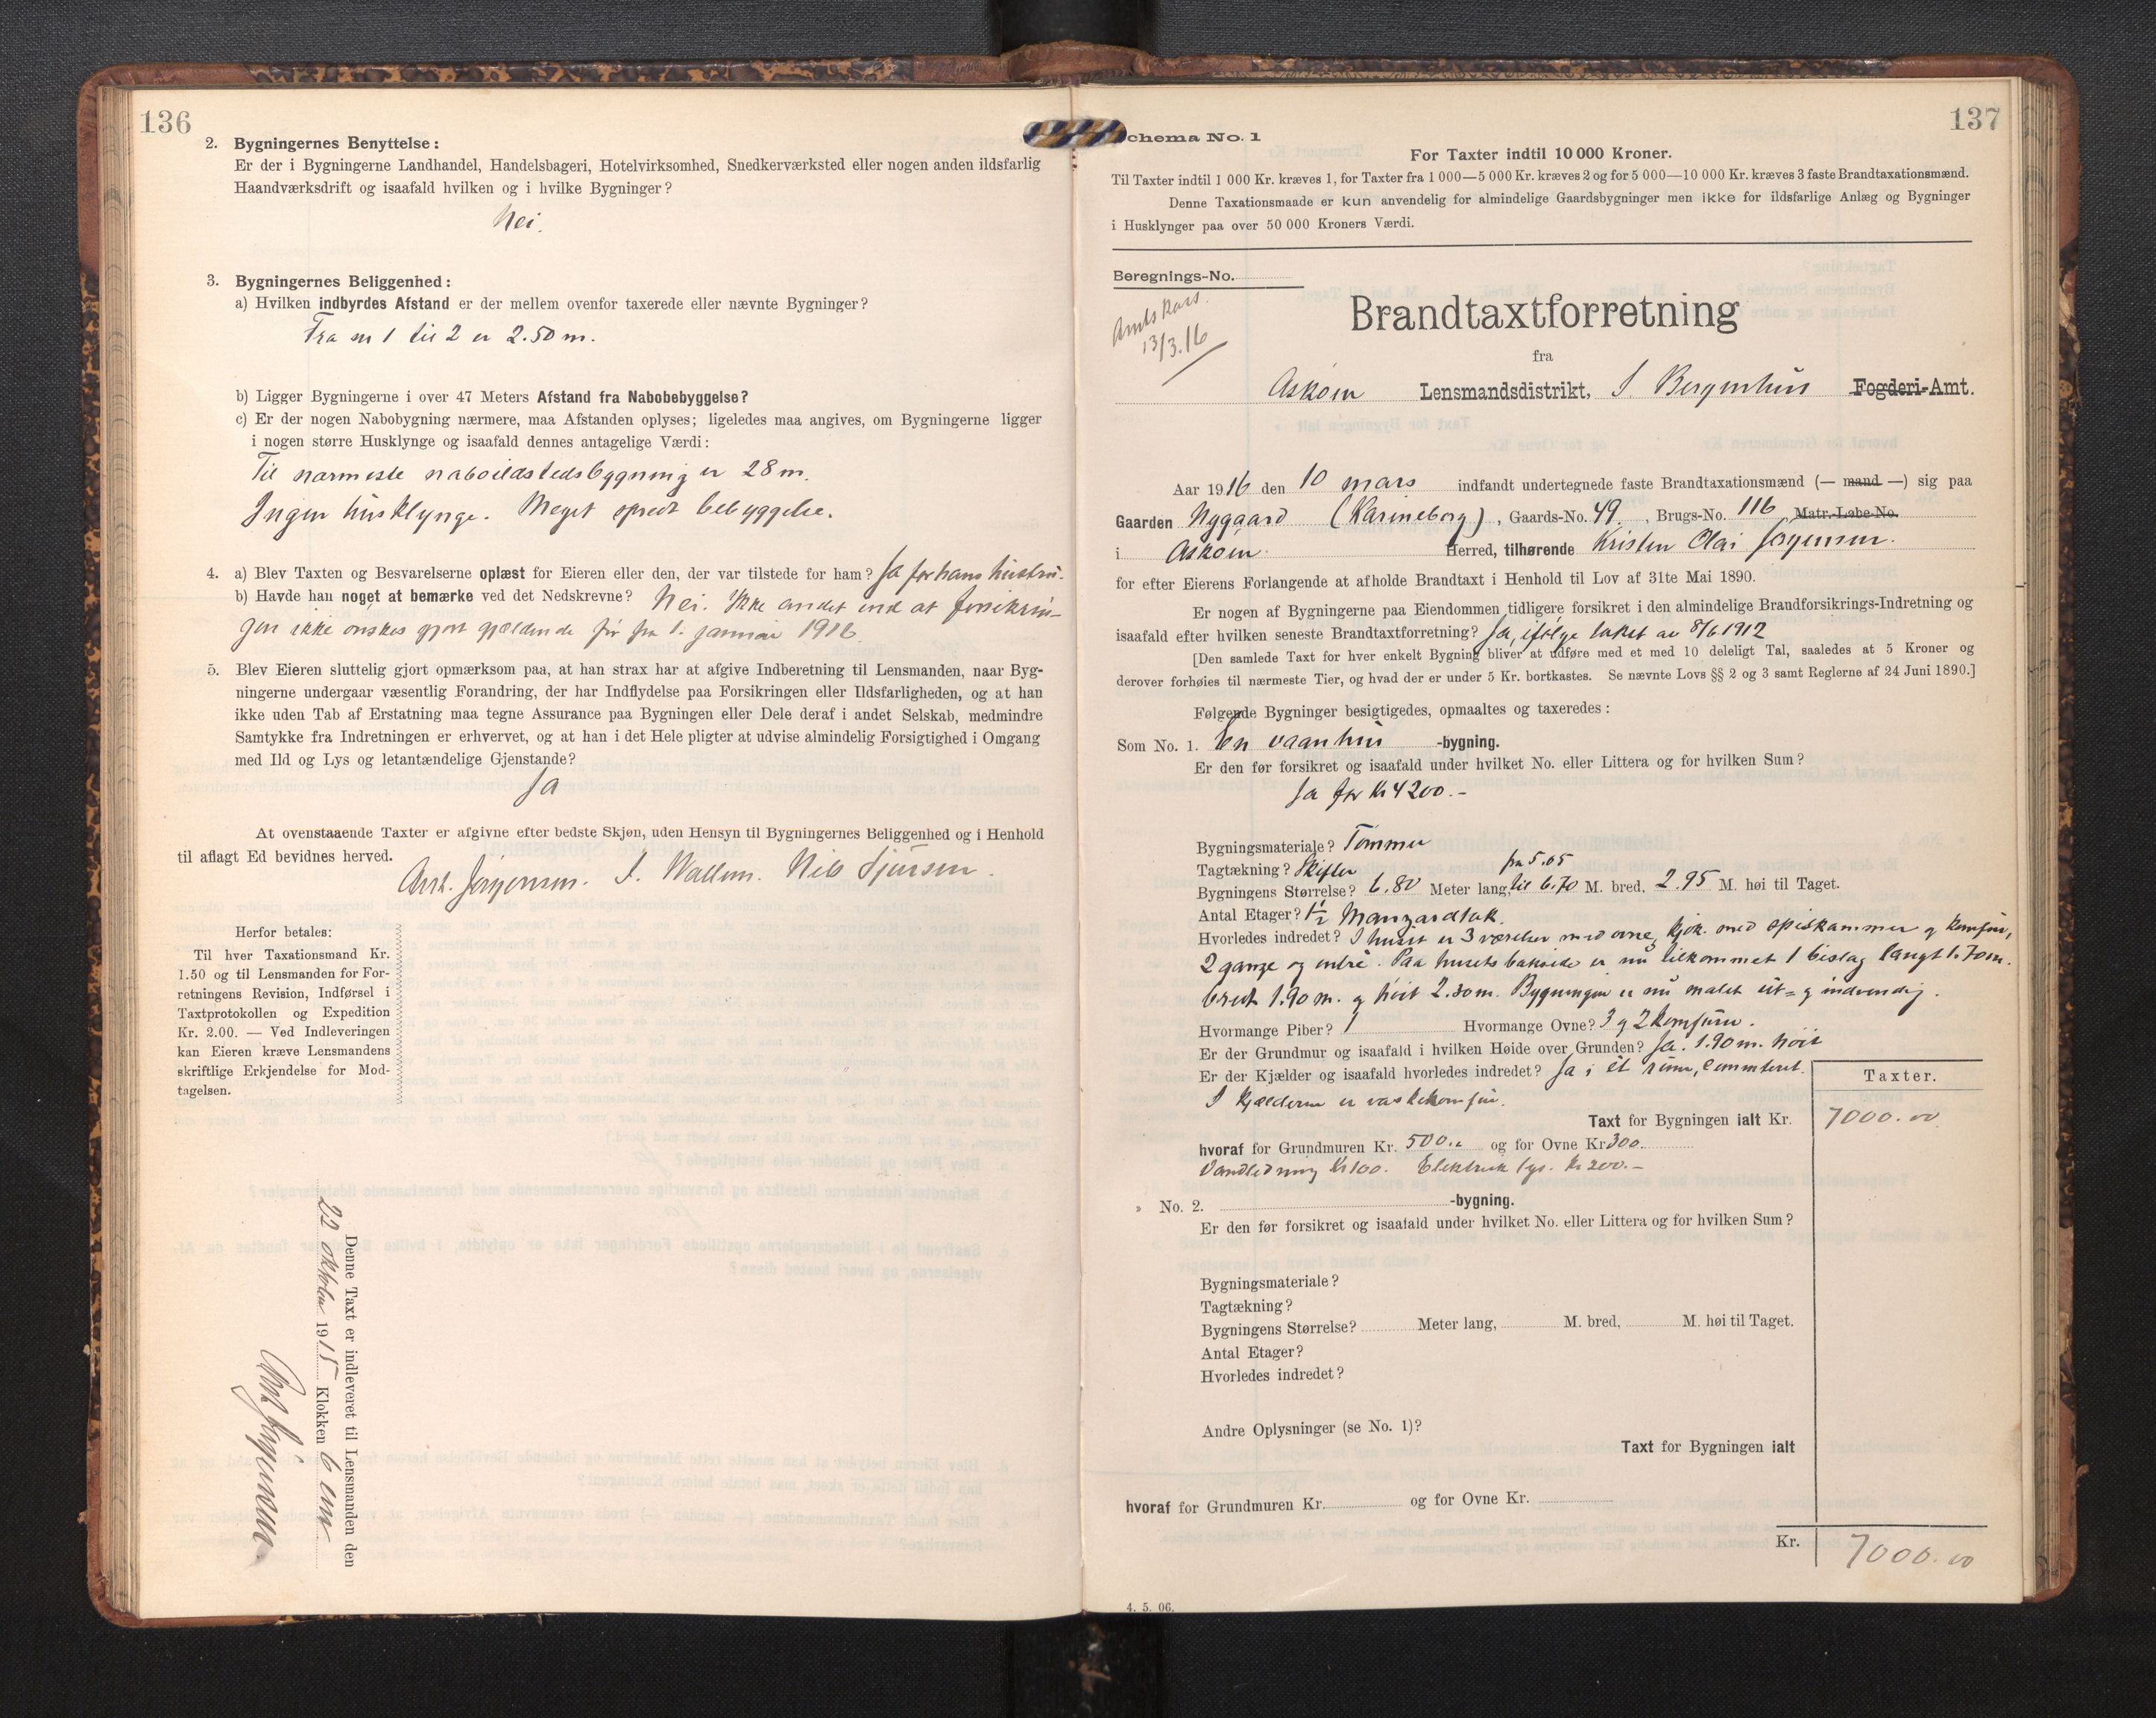 136
2. Bygningernes Benyttelse:
Er der i Bygningerne Landhandel, Handelsbageri, Hotelvirksomhed, Snedkerværksted eller nogen anden ildsfarlig
Haandværksdrift og isaafald hvilken og i hvilke Bygninger?
Nei.
3. Bygningernes Beliggenhed:
a) Hvilken indbyrdes Afstand er der mellem ovenfor taxerede eller nævnte Bygninger?
Fra no 1 til 2 er 2.50 m.
b) Ligger Bygningerne i over 47 Meters Afstand fra Nabobebyggelse?
c) Er der nogen Nabobygning nærmere, maa Afstanden oplyses; ligeledes maa angives, om Bygningerne ligger
i nogen større Husklynge og isaafald dennes antagelige Værdi:
Til nærmeste naboildstedsbygning er 28 m.
Ingen husklynge. Meget spredt bebyggelse.
4. a) Blev Taxten og Besvarelserne oplæst for Eieren eller den, der var tilstede for ham? Ja for hans hustru.
b) Havde han noget at bemærke ved det Nedskrevne? Nei. Ikke andet end at forsikrin-
gen ikke ønskes gjort gjældende før fra 1. januar 1916
5. Blev Eieren sluttelig gjort opmærksom paa, at han strax har at afgive Indberetning til Lensmanden, naar Byg-
ningerne undergaar væsentlig Forandring, der har Indflydelse paa Forsikringen eller Ildsfarligheden, og at han
ikke uden Tab af Erstatning maa tegne Assurance paa Bygningen eller Dele deraf i andet Selskab, medmindre
Samtykke fra Indretningen er erhvervet, og at han i det Hele pligter at udvise almindelig Forsigtighed i Omgang
med Ild og Lys og letantændelige Gjenstande?
Ja
At ovenstaaende Taxter er afgivne efter bedste Skjøn, uden Hensyn til Bygningernes Beliggenhed og i Henhold
til aflagt Ed bevidnes herved.
Jørgensen. Nils Sjursen.
Herfor betales:
Til hver Taxationsmand Kr.
1.50 og til Lensmanden for For-
retningens Revision, Indførsel i
Taxtprotokollen og Expedition
Kr. 2.00. — Ved Indleveringen
kan Eieren kræve Lensmandens
skriftlige Erkjendelse for Mod-
tagelsen.
Denne Taxt er indleveret til Lensmanden den
22 oktober 1915 Klokken 6 em
Jørgensen
137
chema No. 1
For Taxter indtil 10 000 Kroner.
Til Taxter indtil 1 000 Kr. kræves 1, for Taxter fra 1 000—5 000 Kr. kræves 2 og for 5 000—10 000 Kr. kræves 3 faste Brandtaxationsmænd.
Denne Taxationsmaade er kun anvendelig for almindelige Gaardsbygninger men ikke for ildsfarlige Anlæg og Bygninger
i Husklynger paa over 50 000 Kroners Værdi.
Beregnings-No.
13/3.16
Brandtaxtforretning
fra
Askøen Lensmandsdistrikt, S. Bergenhus Fogderi-Amt.
Aar 1916 den 10 mars indfandt undertegnede faste Brandtaxationsmænd (— mand —) sig paa
Gaarden Nygaard (Karineborg), Gaards-No. 49, Brugs-No. 116 Matr.-Løbe-No.
i Askøen Herred, tilhørende Kristen Olai Jørgensen.
for efter Eierens Forlangende at afholde Brandtaxt i Henhold til Lov af 31te Mai 1890.
Er nogen af Bygningerne paa Eiendommen tidligere forsikret i den almindelige Brandforsikrings-Indretning og
isaafald efter hvilken seneste Brandtaxtforretning? Ja, ifølge takst av 8/6 1912
[Den samlede Taxt for hver enkelt Bygning bliver at udføre med et med 10 deleligt Tal, saaledes at 5 Kroner og
derover forhøies til nærmeste Tier, og hvad der er under 5 Kr. bortkastes. Se nævnte Lovs §§ 2 og 3 samt Reglerne af 24 Juni 1890.]
Følgende Bygninger besigtigedes, opmaaltes og taxeredes:
Som No. 1. En vaanhus -bygning.
Er den før forsikret og isaafald under hvilket No. eller Littera og for hvilken Sum?
Ja for Kr 4200.-
Bygningsmateriale? Tømmer
Tagtækning? Skifer
fra 5.05
Bygningens Størrelse? 6.80 Meter lang, til 6.70 M. bred, 2.95 M. høi til Taget.
Antal Etager? 1 1/2 Manzardtak.
Hvorledes indredet? I huset er 3 værelser med ovne, kjøk. med spiskammer og komfur,
2 gange og entre. Paa husets bakside er nu tilkommet 1 bislag langt 1.70 m.
bredt 1.90 m. og høit 2.30 m. Bygningen er nu malet ut= og indvendig.
Hvormange Piber? 1 Hvormange Ovne? 3 og 2 komfurer.
Er der Grundmur og isaafald i hvilken Høide over Grunden? Ja. 1.90 m. høit
Er der Kjælder og isaafald hvorledes indredet? Ja i et rum, cementeret.
I kjælderen er vaskekomfur.
Taxter.
Taxt for Bygningen ialt Kr. 7000.00
hvoraf for Grundmuren Kr. 500.- og for Ovne Kr 300.
Vandledning Kr 100. Elektrisk lys. Kr 200.-
» No. 2. -bygning.
Er den før forsikret og isaafald under hvilket No. eller Littera og for hvilken Sum?
Bygningsmateriale?
Tagtækning?
Bygningens Størrelse? Meter lang, M. bred, M. høi til Taget.
Antal Etager?
Hvorledes indredet?
Andre Oplysninger (se No. 1)?
Taxt for Bygningen ialt
hvoraf for Grundmuren Kr. og for Ovne Kr.
Kr. 7000.00
4. 5. 06.